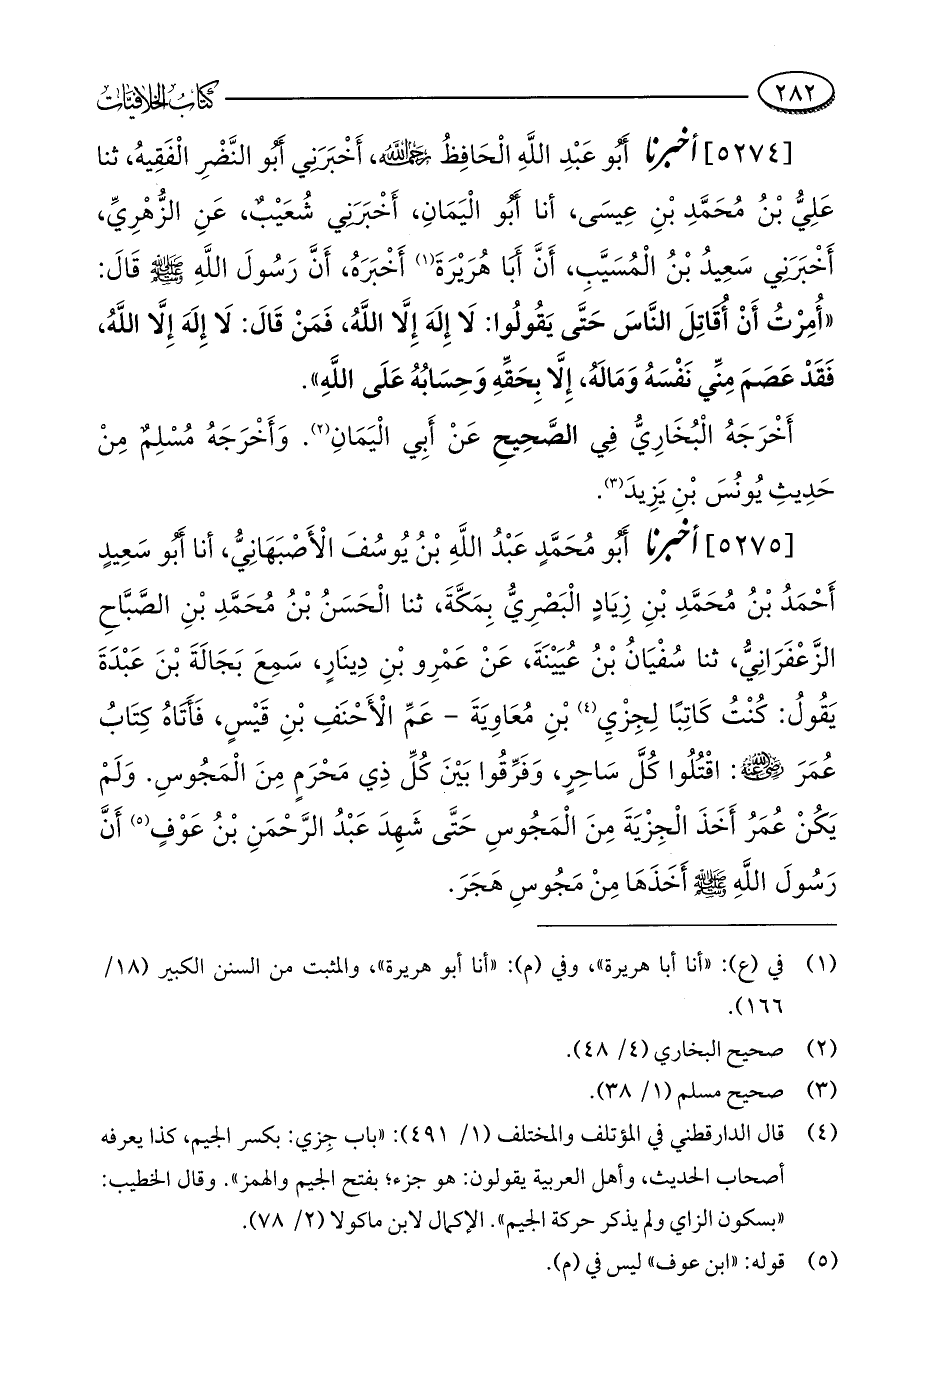 ٢٨٢ كتاب الخلافيات
[٥٢٧٤] أخبرنا أَبُو عَبْدِ اللَّهِ الْحَافِظُ رَحِمَهُ اللَّهُ، أَخْبَرَنِي أَبُو النَّضْرِ الْفَقِيهُ، ثنا
عَلِيُّ بْنُ مُحَمَّدِ بْنِ عِيسَى، أنا أَبُو الْيَمَانِ، أَخْبَرَنِي شُعَيْبٌ، عَنِ الزُّهْرِيِّ،
أَخْبَرَنِي سَعِيدُ بْنُ الْمُسَيَّبِ، أَنَّ أَبَا هُرَيْرَةَ(١) أَخْبَرَهُ، أَنَّ رَسُولَ اللَّهِ ﷺ قَالَ:
«أُمِرْتُ أَنْ أُقَاتِلَ النَّاسَ حَتَّى يَقُولُوا: لَا إِلَهَ إِلَّا اللَّهُ، فَمَنْ قَالَ: لَا إِلَهَ إِلَّا اللَّهُ،
فَقَدْ عَصَمَ مِنِّي نَفْسَهُ وَمَالَهُ، إِلَّا بِحَقِّهِ وَحِسَابُهُ عَلَى اللَّهِ».
أَخْرَجَهُ الْبُخَارِيُّ فِي الصَّحِيحِ عَنْ أَبِي الْيَمَانِ(٢). وَأَخْرَجَهُ مُسْلِمٌ مِنْ
حَدِيثِ يُونُسَ بْنِ يَزِيدَ(٣).
[٥٢٧٥] أخبرنا أَبُو مُحَمَّدٍ عَبْدُ اللَّهِ بْنُ يُوسُفَ الْأَصْبَهَانِيُّ، أنا أَبُو سَعِيدٍ
أَحْمَدُ بْنُ مُحَمَّدِ بْنِ زِيَادٍ الْبَصْرِيُّ بِمَكَّةَ، ثنا الْحَسَنُ بْنُ مُحَمَّدِ بْنِ الصَّبَّاحِ
الزَّعْفَرَانِيُّ، ثنا سُفْيَانُ بْنُ عُيَيْنَةَ، عَنْ عَمْرِو بْنِ دِينَارٍ، سَمِعَ بَجَالَةَ بْنَ عَبْدَةَ
يَقُولُ: كُنْتُ كَاتِبًا لِجِزْيِ(٤) بْنِ مُعَاوِيَةَ - عَمِّ الْأَحْنَفِ بْنِ قَيْسٍ، فَأَتَاهُ كِتَابُ
عُمَرَ رَضِيَ اللَّهُ عَنْهُ: اقْتُلُوا كُلَّ سَاحِرٍ، وَفَرِّقُوا بَيْنَ كُلِّ ذِي مَحْرَمٍ مِنَ الْمَجُوسِ. وَلَمْ
يَكُنْ عُمَرُ أَخَذَ الْجِزْيَةَ مِنَ الْمَجُوسِ حَتَّى شَهِدَ عَبْدُ الرَّحْمَنِ بْنُ عَوْفٍ(٥) أَنَّ
رَسُولَ اللَّهِ ﷺ أَخَذَهَا مِنْ مَجُوسِ هَجَرَ.
(١) في (ع): «أنا أبا هريرة»، وفي (م): «أنا أبو هريرة»، والمثبت من السنن الكبير (١٨/
١٦٦).
(٢) صحيح البخاري (٤/ ٤٨).
(٣) صحيح مسلم (١/ ٣٨).
(٤) قال الدارقطني في المؤتلف والمختلف (١/ ٤٩١): «باب جِزي: بكسر الجيم، كذا يعرفه
أصحاب الحديث، وأهل العربية يقولون: هو جزء؛ بفتح الجيم والهمز». وقال الخطيب:
«بسكون الزاي ولم يذكر حركة الجيم». الإكمال لابن ماكولا (٢/ ٧٨).
(٥) قوله: «ابن عوف» ليس في (م).